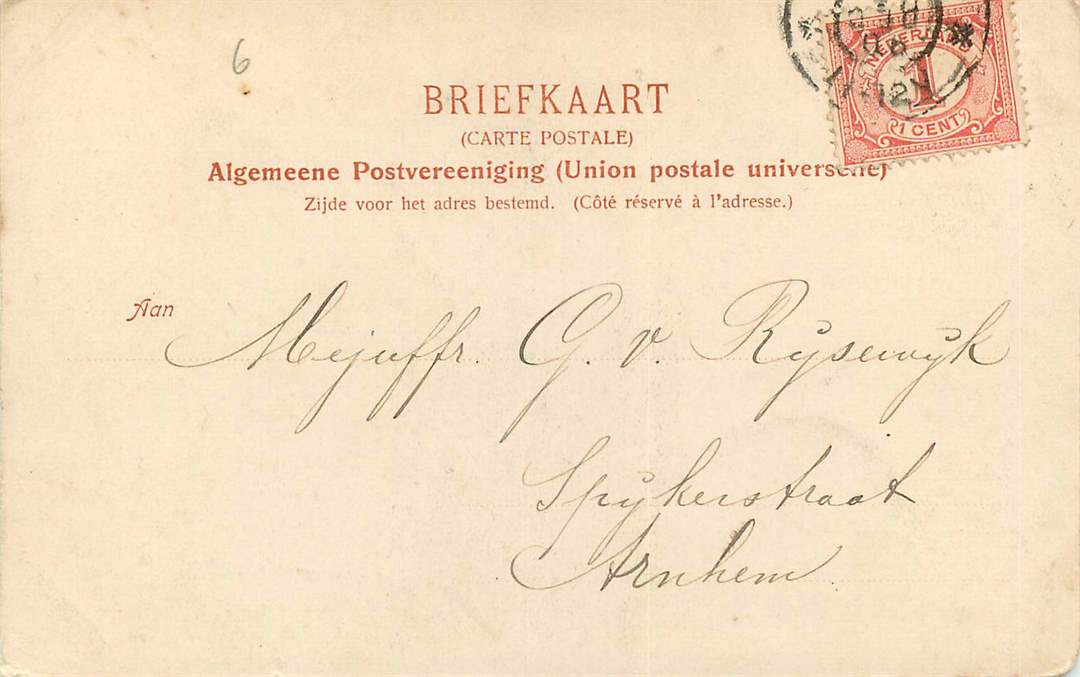 6
BRIEFKAART
(CARTE POSTALE)
Algemeene Postvereeniging (Union postale universelle)
Zijde voor het adres bestemd. (Côté réservé à l'adresse.)
NEDERLAND
1
1 CENT
Aan
Mejuffr. G. v. Rijsewijk
Spijkerstraat
Arnhem.